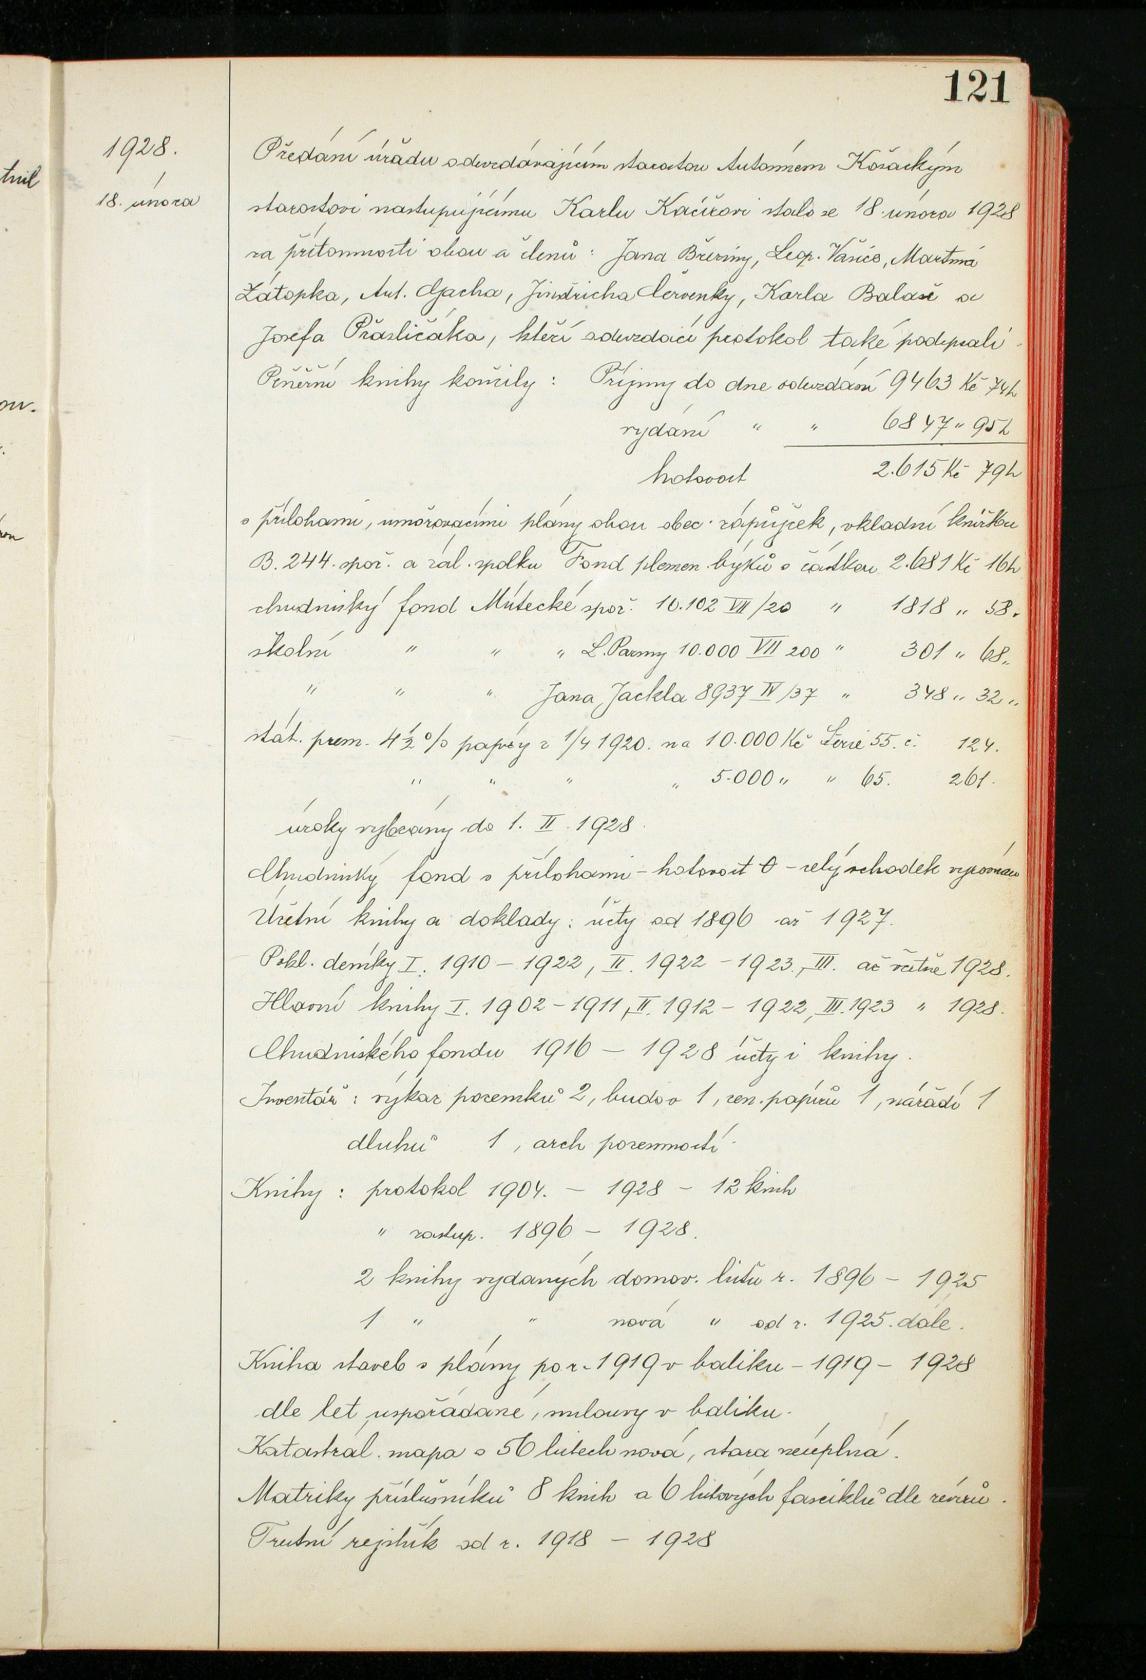 121
1928.
18. února
Předání úřadu odevzdávajícím starostou Antonínem Kořackým
starostovi nastupujícímu Karlu Kačířovi stalo se 18. února 1928
za přítomnosti obou a členů: Jana Březiny, Leop. Vašice, Martina
Zátopka, Ant. Gacha, Jindřicha Červenky, Karla Balase a
Josefa Prasličáka, kteří odevzdací protokol také podepsali.
Peněžní knihy končily: Příjmy do dne odevzdání 9463 Kč 74h
vydání " " 6847 " 95h
hotovost 2.615 Kč 79h
s přílohami, umořovacími plány obou obec. zápůjček, vkladní knížkou
B. 244. spoř. a zál. spolku Fond plemen. býků s částkou 2.681 Kč 16h
chudinský fond Místecké spoř. 10.102 VII/20 " 1818 " 58 "
školní " " " L. Parmy 10.000 VII 200 " 301 " 68 "
" " " Jana Jackla 8937 IV/37 " 348 " 32 "
stát. prem. 4½ % papíry z 1/4 1920. na 10.000 Kč Serie 55. č. 124.
" " " " 5.000 " " 65. 261.
úroky vybrány do 1. II. 1928.
Chudinský fond s přílohami – hotovost 0 – celý schodek vyrovnán
Účetní knihy a doklady: účty od 1896 až 1927.
Pokl. deníky I. 1910 – 1922, II. 1922 – 1923., III. až včetně 1928.
Hlavní knihy I. 1902 – 1911, II. 1912 – 1922, III. 1923 " 1928.
Chudinského fondu 1916 – 1928 účty i knihy.
Inventář: výkaz pozemků 2, budov 1, cen. papírů 1, nářadí 1
dluhů 1, arch pozemností.
Knihy: protokol 1904. – 1928 – 12 knih
" zastup. 1896 – 1928.
2 knihy vydaných domov. listů r. 1896 – 1925
1 " " nová " od r. 1925. dále.
Kniha staveb s plány po r. 1919 v balíku – 1919 – 1928
dle let uspořádané, smlouvy v balíku.
Katastrál. mapa o 56 listech nová, stará neúplná.
Matriky příslušníků 8 knih a 6 listových fasciklů dle
Trestní rejstřík od r. 1918 – 1928